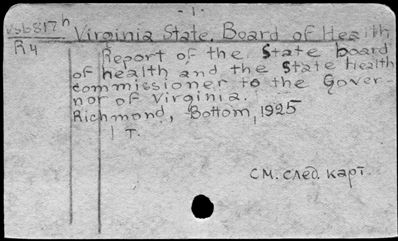 - 1 -
vs6817h Virginia State. Board of Health
R4 Report of the State board
of health and the State Health
commissioner to the Gover-
nor of Virginia.
Richmond, Bottom, 1925
1 T.
см. след. карт.